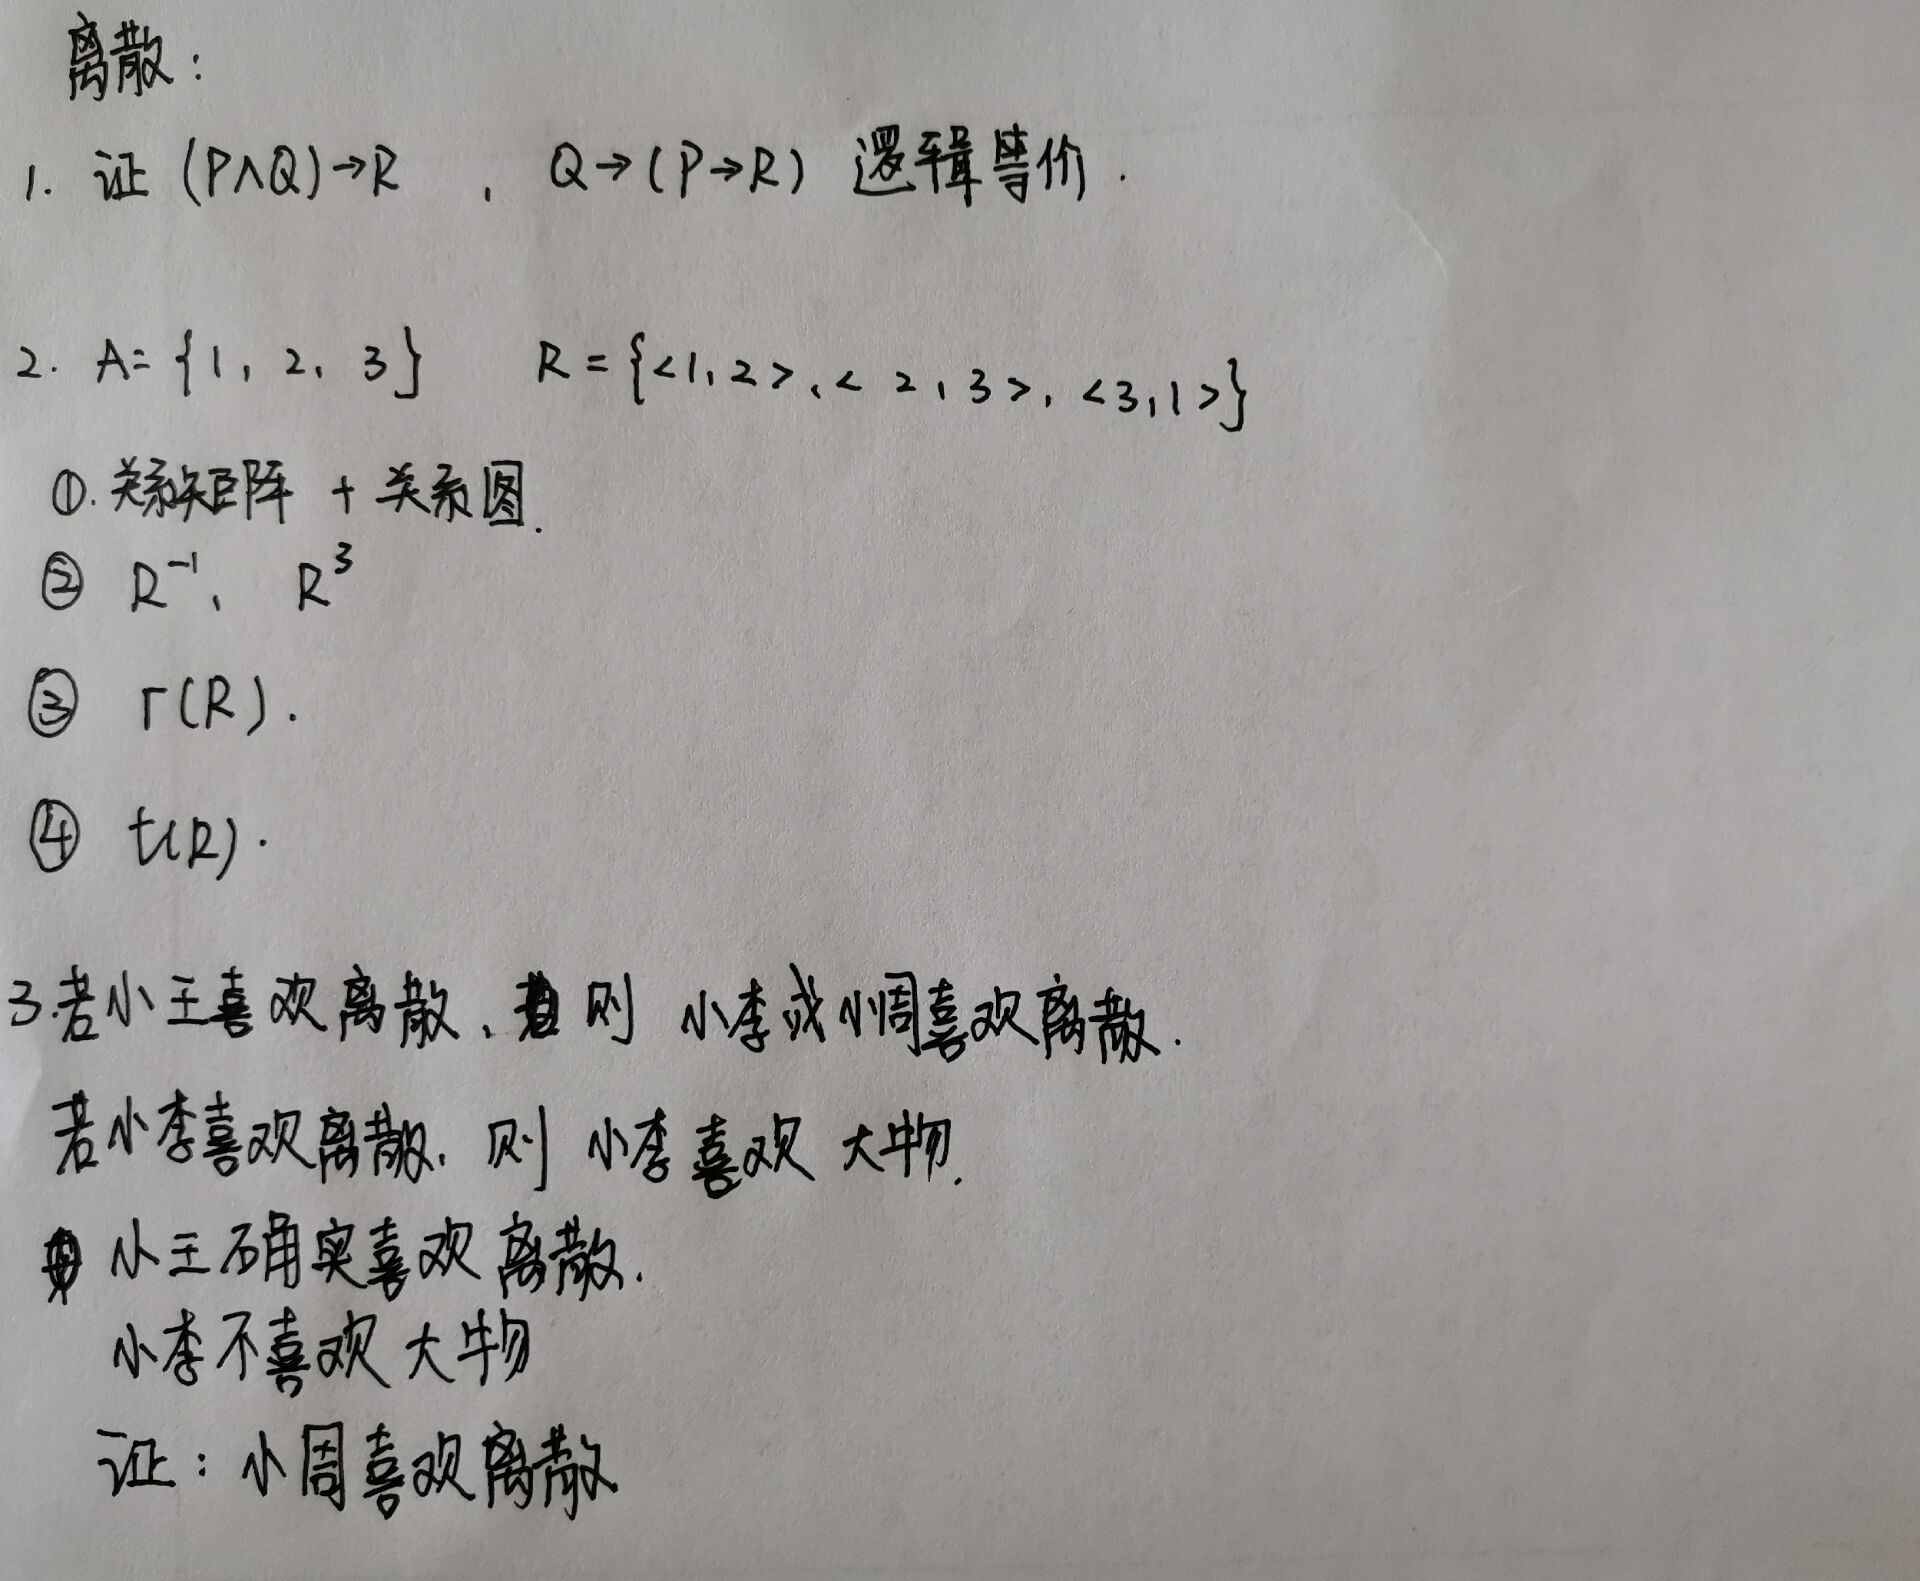 离散：
1. 证 (P∧Q)→R ， Q→(P→R) 逻辑等价．
2. A={1，2，3} R={<1,2>,<2,3>,<3,1>}
①.关系矩阵 + 关系图.
② R⁻¹、 R³
③ r(R).
④ t(R).
3.若小王喜欢离散，则 小李或小周喜欢离散.
若小李喜欢离散，则 小李喜欢 大物.
小王确实喜欢离散.
小李不喜欢大物
证：小周喜欢离散